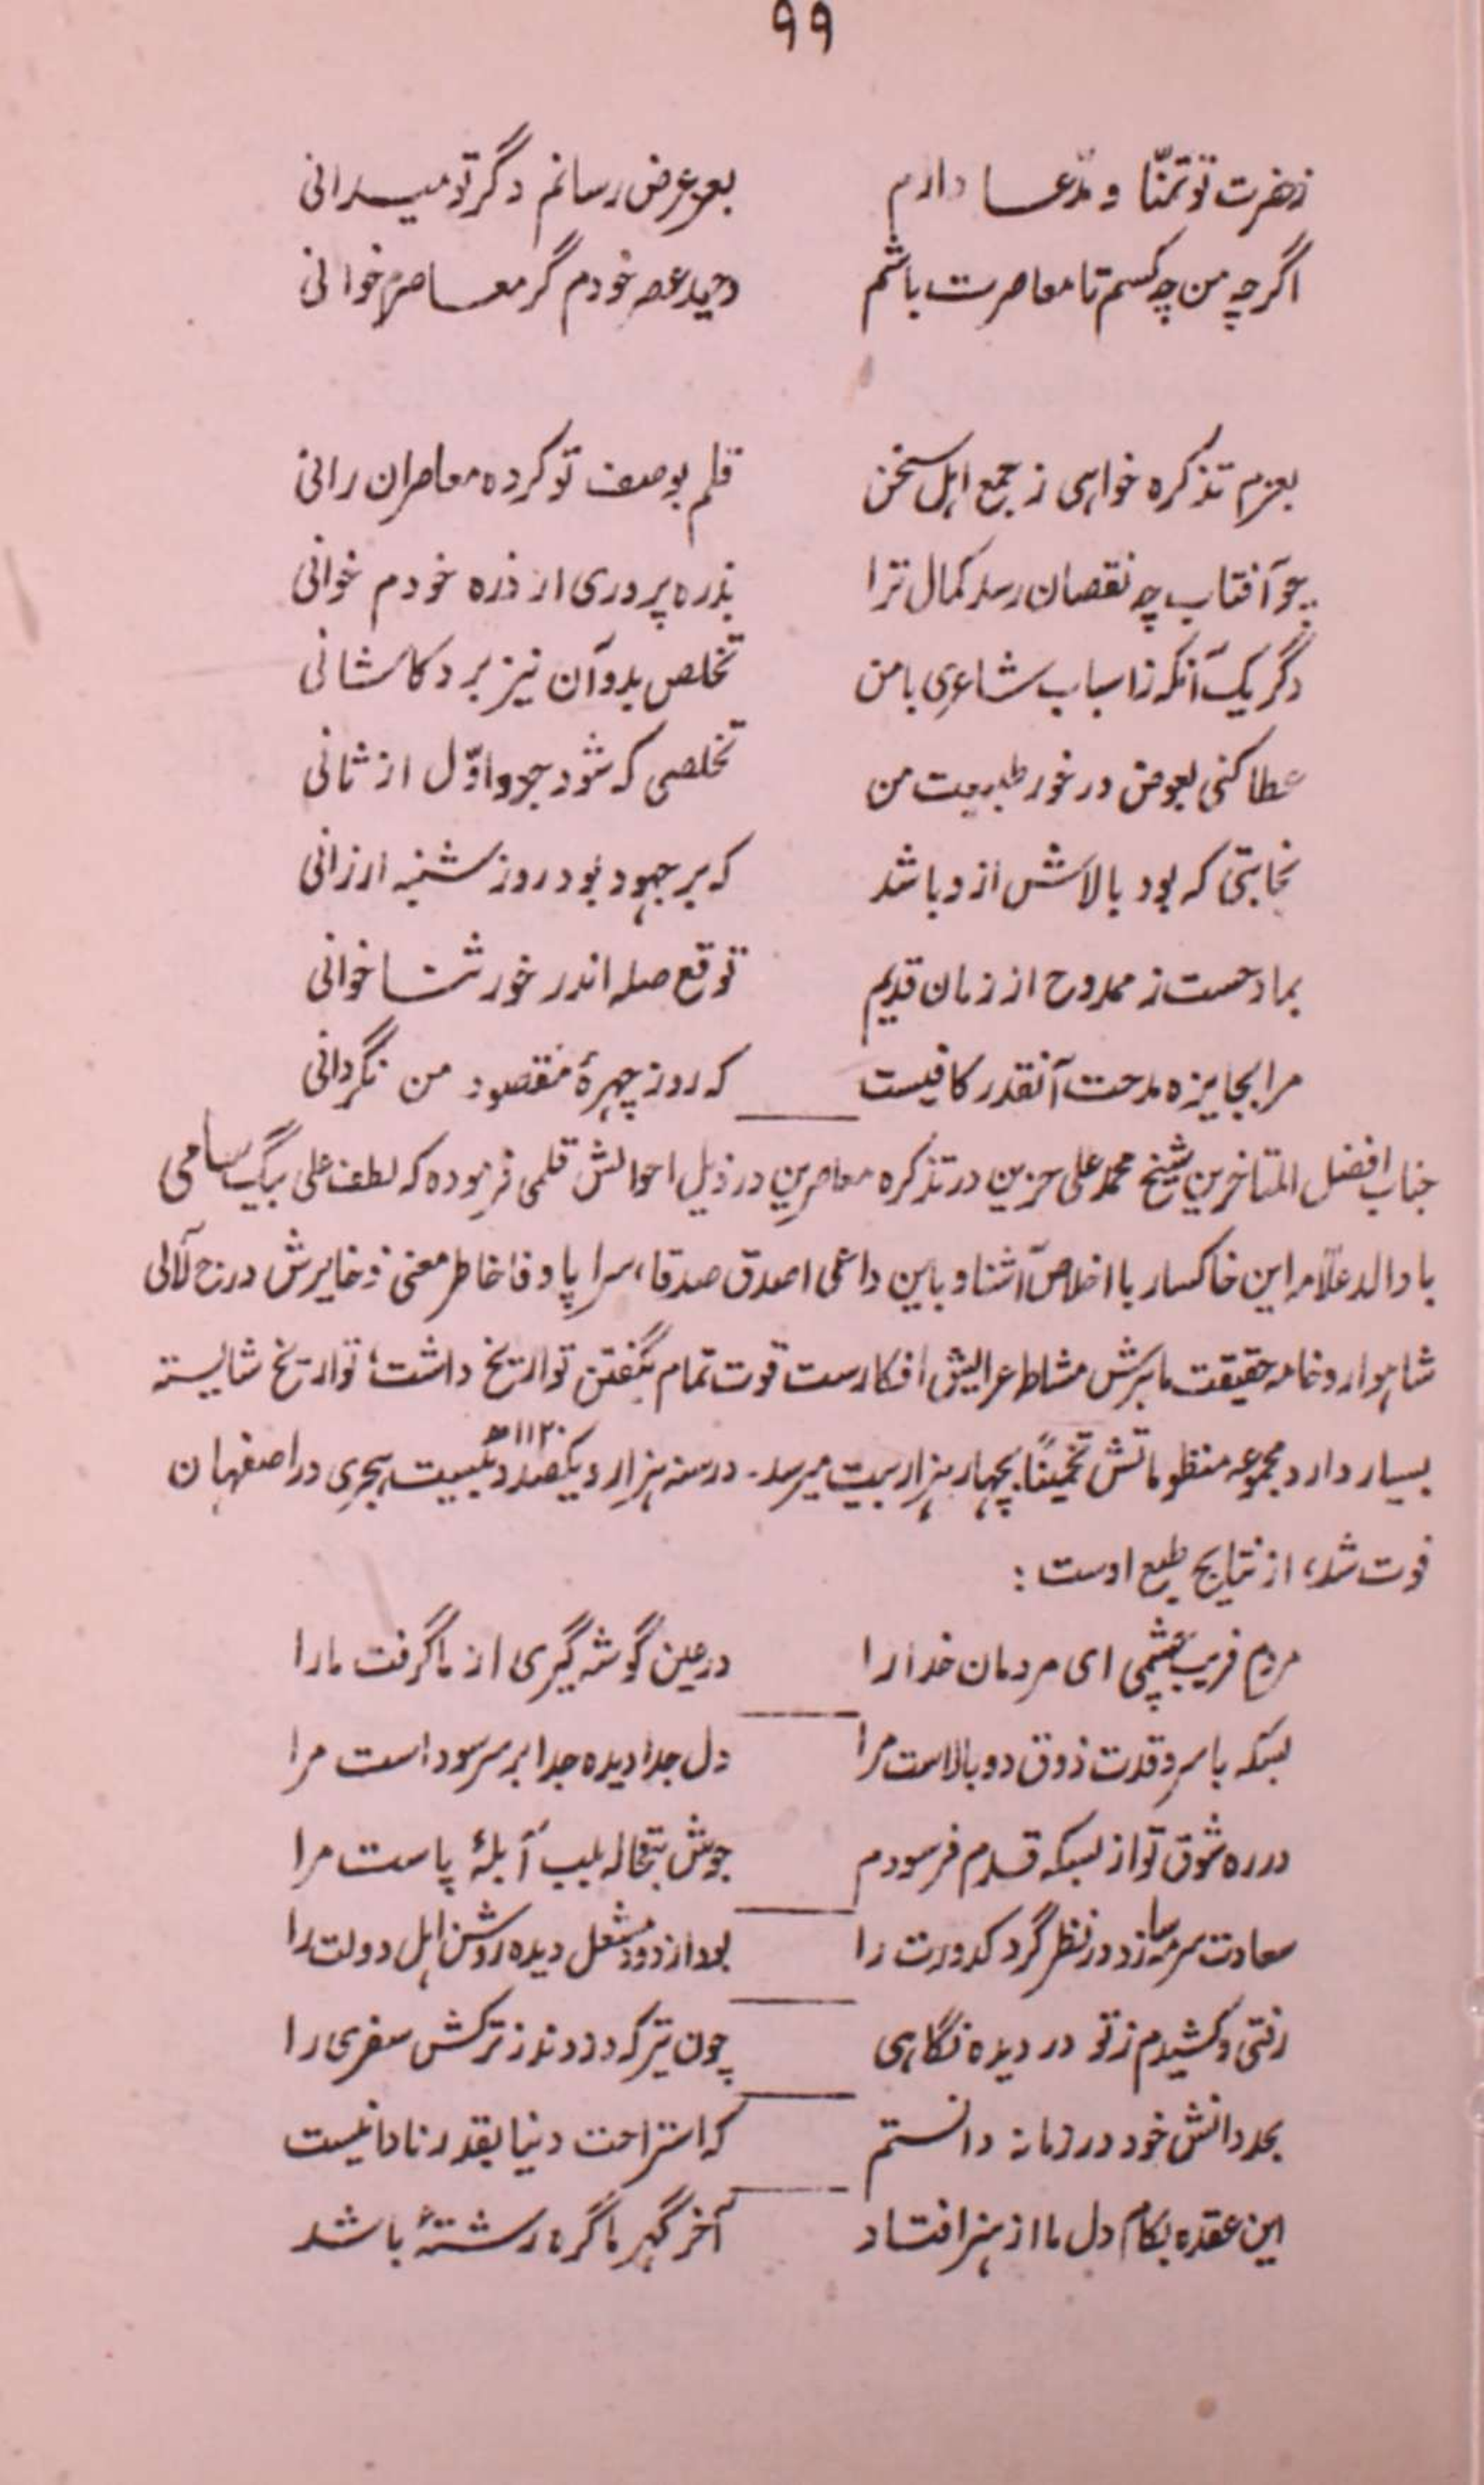 ۹۹
زحضرت تو تمنّا و مدّعا دارم بعرض رسانم دگر تو میدانی
اگرچه من چه کسم تا معاصرت باشم وحید عصر خودم گر معاصرم خوانی
بعزم تذکره خواهی ز جمع اہل سخن قلم بوصف تو کرده معاصران رانی
چو آفتاب چه نقصان رسد کمال ترا بذره پروری ار ذره خودم خوانی
دگر یک آنکه ز اسباب شاعری بامن تخلص بدو آن نیز برد کاشانی
عطا کنی بعوض در خور طبیعت من تخلصی که شود جود اوّل از ثانی
نجابتی که بود بالاش از و باشد که بر جہود بود روز شنبه ارزانی
بمادحست ز ممدوح از زمان قدیم توقع صله اندر خور ثنا خوانی
مرا بجایزه مدحت آنقدر کافیست که روز چہرۀ مقصود من نگردانی
جناب افضل المتاخرین شیخ محمد علی حزین در تذکره معاصرین در ذیل احوالش قلمی فرموده که لطف علی بیگ سامی
با والد علّامه این خاکسار با اخلاص آشنا و باین داعی اصدق صدقا، سراپا وفا خاطر معنی ذخایرش درج لآلی
شاہوار و خامه حقیقت مابرش مشاطہ عرایش افکارست قوت تمام بگفتن تواریخ داشت؛ تواریخ شایسته
بسیار دارد مجموعه منظوماتش تخمیناً بچہار ہزار بیت میرسد۔ در سنه ہزار و یکصد و بیست ۱۱۲۰ھ ہجری در اصفہان
فوت شد، از نتایج طبع اوست :
مردم فریب چشمی ای مردمان خدارا در عین گوشه گیری از ما گرفت مارا
بسکه با سرو قدت ذوق دوبالاست مرا دل جدا دیده جدا بر سر سوداست مرا
در ره شوق تو از بسکه قدم فرسودم جوش تبخاله بلب آبلۀ پاست مرا
سعادت سرمه سازد در نظر گرد کدورت را بود از دود مشعل دیده روشن اہل دولت را
رفتی و کشیدم ز تو در دیده نگاہی چون تیر که دزدند ز ترکش سفری را
بحد دانش خود در زمانه دانستم که استراحت دنیا بقدر نادانیست
این عقده بکام دل ما از ہنر افتاد آخر گہر ما گره رشتۀ باشد